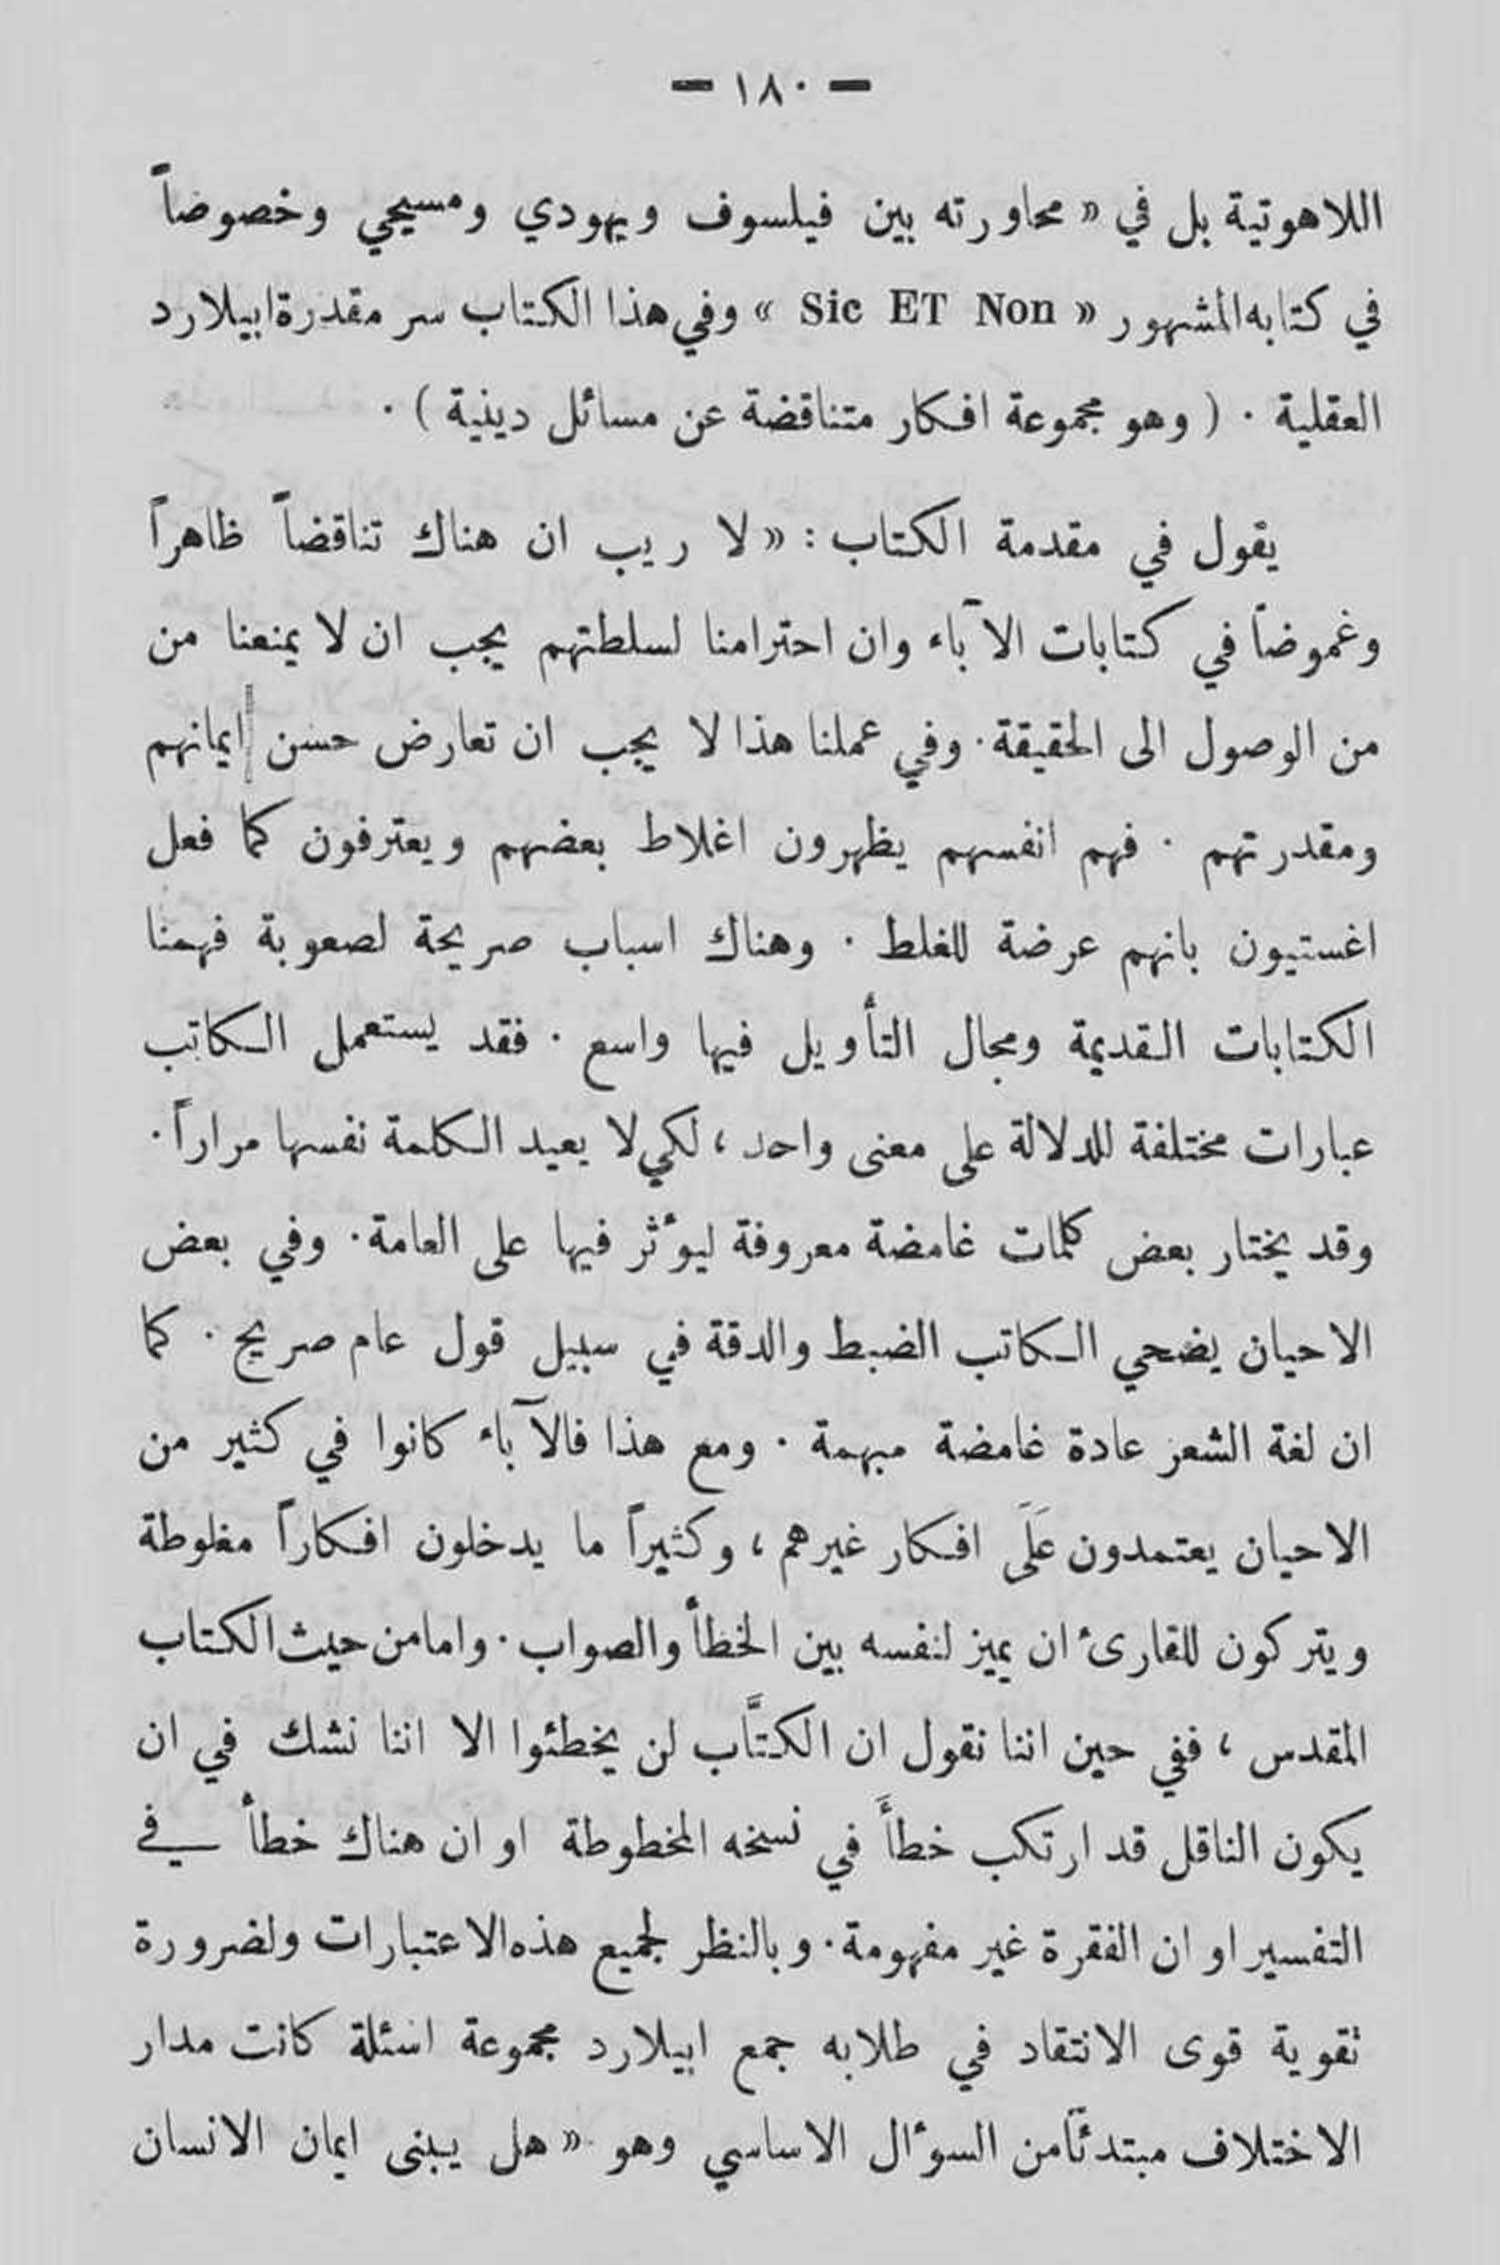 — ١٨٠ —
اللاهوتية بل في « محاورته بين فيلسوف ويهودي ومسيحي وخصوصاً
في كتابه المشهور « Sic ET Non » وفي هذا الكتاب سر مقدرة ابيلارد
العقلية . ( وهو مجموعة افكار متناقضة عن مسائل دينية ) .
يقول في مقدمة الكتاب : « لا ريب ان هناك تناقضاً ظاهراً
وغموضاً في كتابات الآباء وان احترامنا لسلطتهم يجب ان لا يمنعنا من
من الوصول الى الحقيقة . وفي عملنا هذا لا يجب ان تعارض حسن ايمانهم
ومقدرتهم . فهم انفسهم يظهرون اغلاط بعضهم ويعترفون كما فعل
اغستيون بانهم عرضة للغلط . وهناك اسباب صريحة لصعوبة فهمنا
الكتابات القديمة ومجال التأويل فيها واسع . فقد يستعمل الكاتب
عبارات مختلفة للدلالة على معنى واحد ، لكي لا يعيد الكلمة نفسها مراراً .
وقد يختار بعض كلمات غامضة معروفة ليؤثر فيها على العامة . وفي بعض
الاحيان يضحي الكاتب الضبط والدقة في سبيل قول عام صريح . كما
ان لغة الشعر عادة غامضة مبهمة . ومع هذا فالآباء كانوا في كثير من
الاحيان يعتمدون عَلَى افكار غيرهم ، وكثيراً ما يدخلون افكاراً مغلوطة
ويتركون للقارئ ان يميز لنفسه بين الخطأ والصواب . واما من حيث الكتاب
المقدس ، ففي حين اننا نقول ان الكتَّاب لن يخطئوا الا اننا نشك في ان
يكون الناقل قد ارتكب خطأً في نسخه المخطوطة او ان هناك خطأ في
التفسير او ان الفقرة غير مفهومة . وبالنظر لجميع هذه الاعتبارات ولضرورة
تقوية قوى الانتقاد في طلابه جمع ابيلارد مجموعة اسئلة كانت مدار
الاختلاف مبتدئاً من السؤال الاساسي وهو « هل يبنى ايمان الانسان